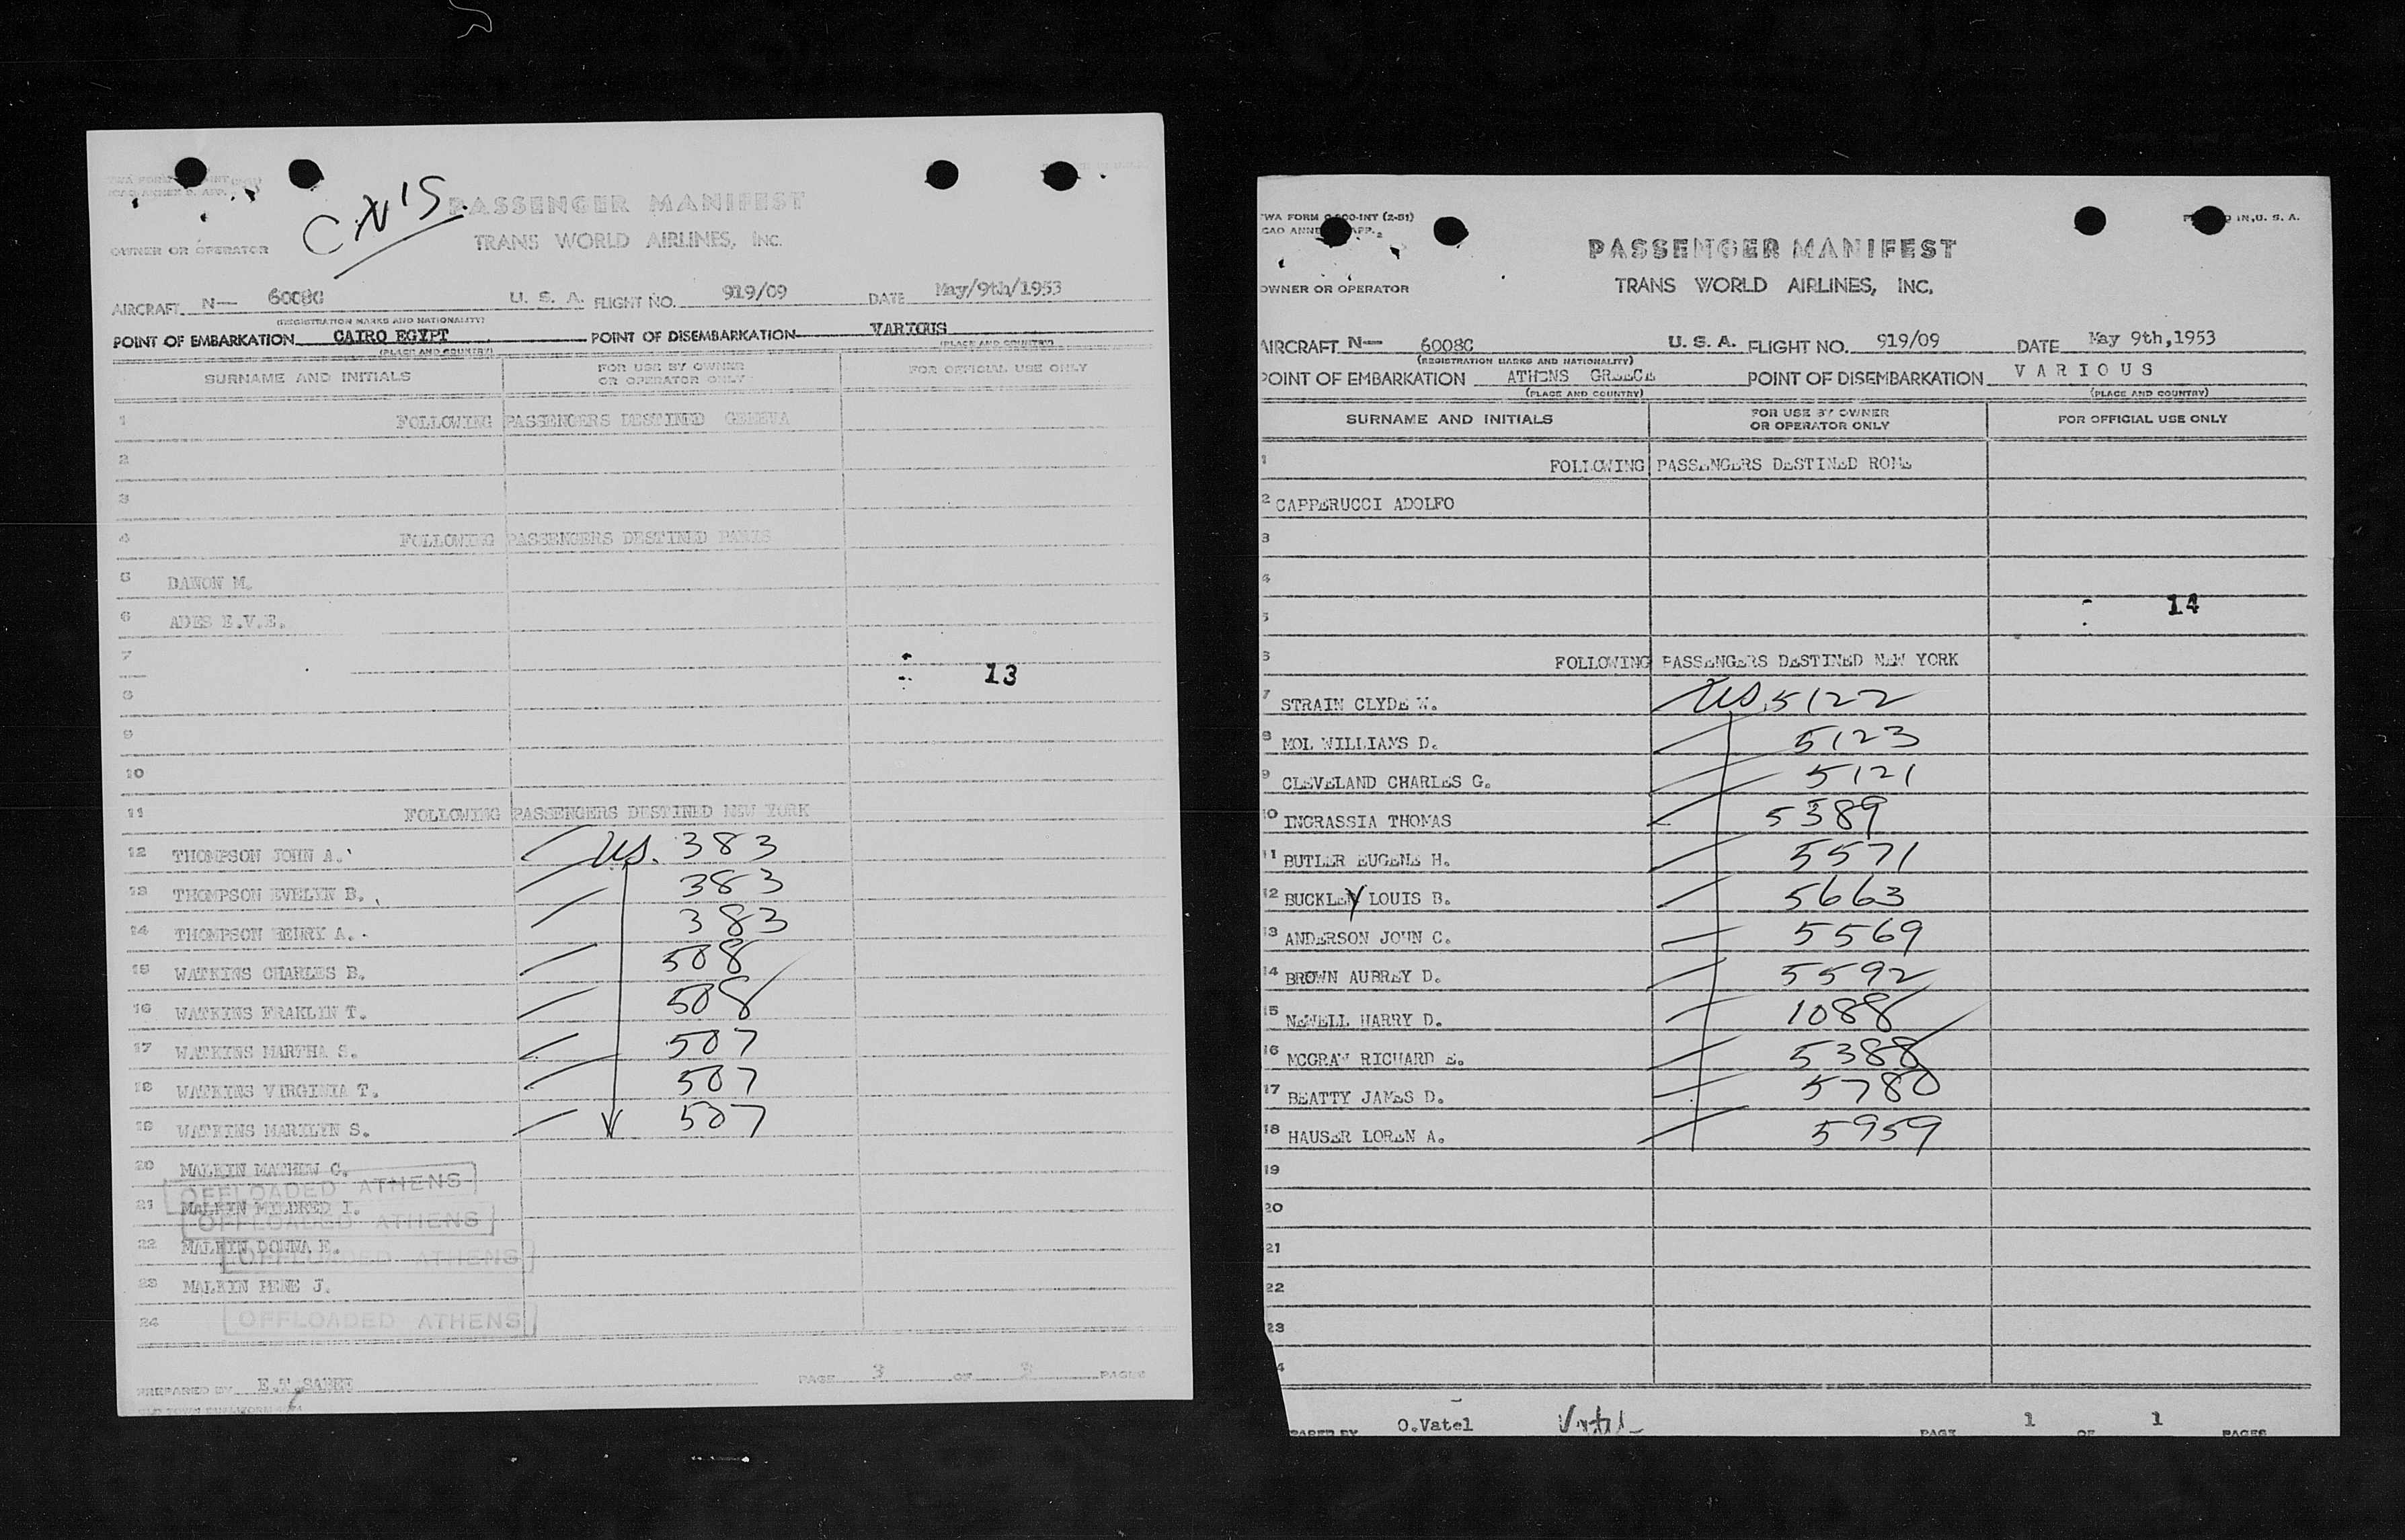 PASSENGER MANIFEST
TRANS WORLD AIRLINES, INC.
OWNER OR OPERATOR
AIRCRAFT N— 6008C U. S. A. FLIGHT NO. 919/09 DATE May/9th/1953
(REGISTRATION MARKS AND NATIONALITY)
POINT OF EMBARKATION CAIRO EGYPT POINT OF DISEMBARKATION VARIOUS
(PLACE AND COUNTRY) (PLACE AND COUNTRY)
SURNAME AND INITIALS FOR USE BY OWNER OR OPERATOR ONLY FOR OFFICIAL USE ONLY
1 FOLLOWING PASSENGERS DESTINED GENEVA
2
3
4 FOLLOWING PASSENGERS DESTINED PARIS
5 DANON M.
6 ADES E.V.E.
7
13
8
9
10
11 FOLLOWING PASSENGERS DESTINED NEW YORK
12 THOMPSON JOHN A. US. 383
13 THOMPSON EVELYN B. 383
14 THOMPSON HENRY A. 383
15 WATKINS CHARLES B. 508
16 WATKINS FRAKLYN T. 508
17 WATKINS MARTHA S. 507
18 WATKINS VIRGINIA T. 507
19 WATKINS MARILYN S. 507
20 MALKIN MATHEW C.
OFFLOADED ATHENS
21 MALKIN MILDRED I.
OFFLOADED ATHENS
22 MALKIN DONNA F.
OFFLOADED ATHENS
23 MALKIN RENE J.
24 OFFLOADED ATHENS
PREPARED BY PAGE 3 OF 3 PAGES
TWA FORM INT (2-51) PRINTED IN U. S. A.
PASSENGER MANIFEST
TRANS WORLD AIRLINES, INC.
OWNER OR OPERATOR
AIRCRAFT N— 6008C U. S. A. FLIGHT NO. 919/09 DATE May 9th,1953
(REGISTRATION MARKS AND NATIONALITY)
POINT OF EMBARKATION ATHENS GREECE POINT OF DISEMBARKATION VARIOUS
(PLACE AND COUNTRY) (PLACE AND COUNTRY)
SURNAME AND INITIALS FOR USE BY OWNER OR OPERATOR ONLY FOR OFFICIAL USE ONLY
1 FOLLOWING PASSENGERS DESTINED ROME
2 CAPPERUCCI ADOLFO
3
4
14
5
6 FOLLOWING PASSENGERS DESTINED NEW YORK
7 STRAIN CLYDE W. US. 5122
8 MOL WILLIAMS D. 5123
9 CLEVELAND CHARLES G. 5121
10 INGRASSIA THOMAS 5389
11 BUTLER EUGENE H. 5571
12 BUCKLEY LOUIS B. 5663
13 ANDERSON JOHN C. 5569
14 BROWN AUBREY D. 5592
15 NEWELL HARRY D. 1088
16 MCGRAW RICHARD E. 5388
17 BEATTY JAMES D. 5780
18 HAUSER LOREN A. 5959
19
20
21
22
23
4
PARED BY O.Vatel Vatel PAGE 1 OF 1 PAGES